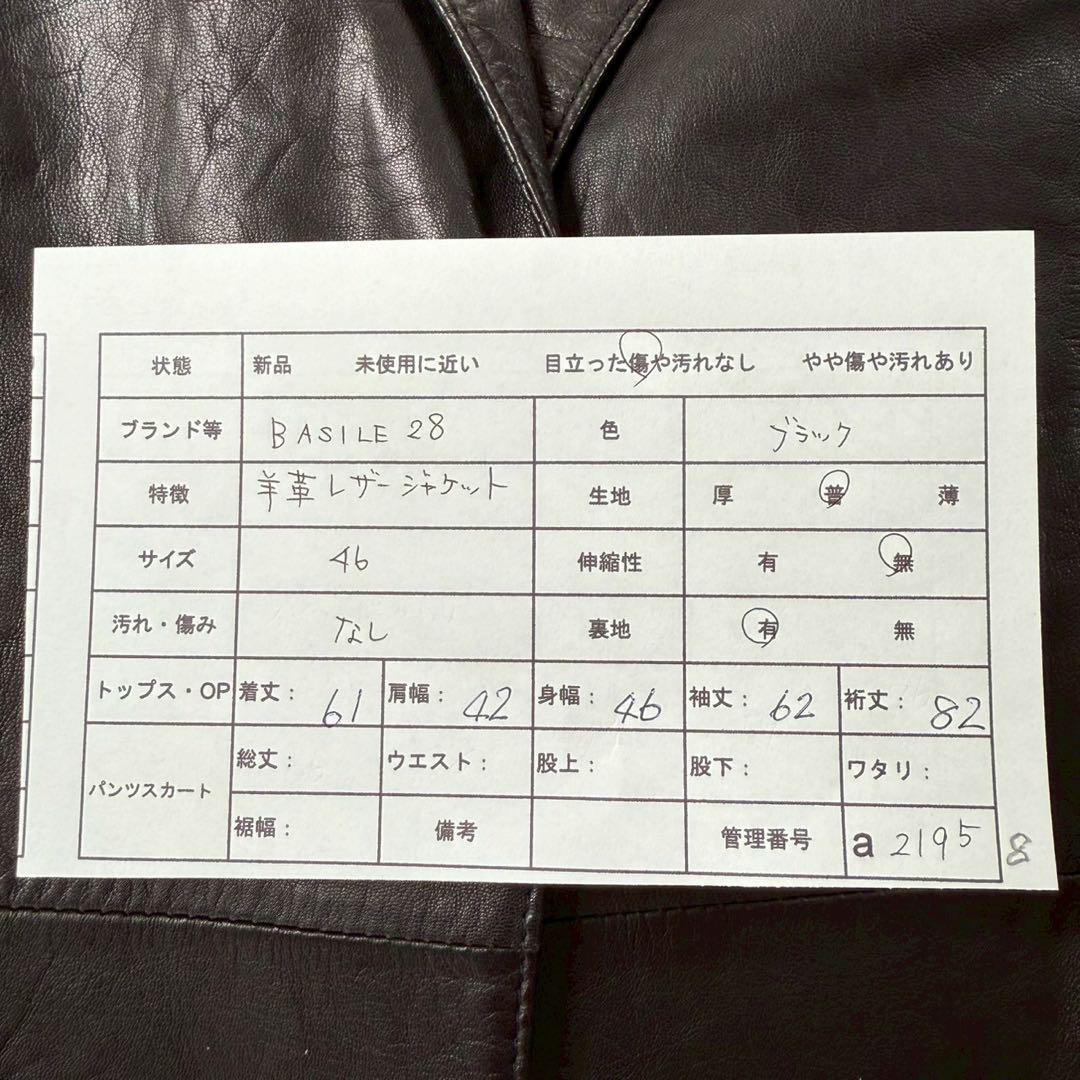 状態 新品 未使用に近い 目立った傷や汚れなし やや傷や汚れあり
ブランド等 BASILE 28 色 ブラック
特徴 羊革レザージャケット 生地 厚 普 薄
サイズ 46 伸縮性 有 無
汚れ・傷み なし 裏地 有 無
トップス・OP 着丈： 61 肩幅： 42 身幅： 46 袖丈： 62 裄丈： 82
パンツスカート 総丈： ウエスト： 股上： 股下： ワタリ：
裾幅： 備考 管理番号 a 2195 8